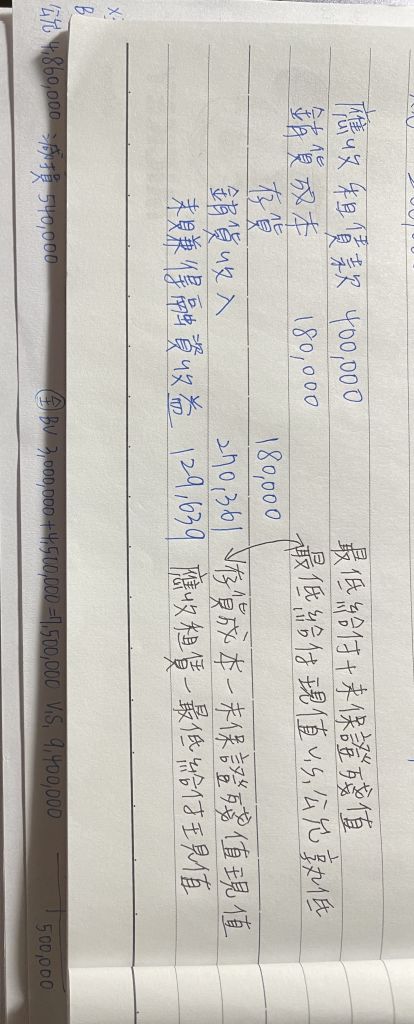 應收租賃款 400,000 最低給付+未保證殘值
銷貨成本 180,000
存貨 180,000 最低給付現值 v.s. 公允 孰低
銷貨收入 270,361 存貨成本-未保證殘值現值
未賺得融資收益 129,639 應收租賃-最低給付現值
公允 4,860,000 ∴減損 540,000 全 BV 3,000,000+4,500,000=7,500,000 V.S. 9,400,000
500,000